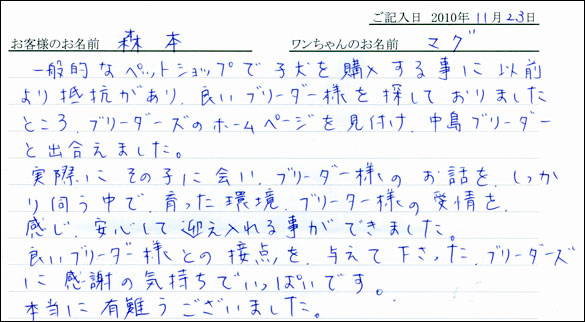 ご記入日 2010年 11月 23日
お客様のお名前 森本 ワンちゃんのお名前 マグ
一般的なペットショップで子犬を購入する事に以前
より抵抗があり、良いブリーダー様を探しておりました
ところ、ブリーダーズのホームページを見付け、中島ブリーダー
と出合えました。
実際にその子に会い、ブリーダー様のお話を、しっか
り伺う中で、育った環境、ブリーダー様の愛情を、
感じ、安心して迎え入れる事ができました。
良いブリーダー様との接点を、与えて下さった、ブリーダーズ
に感謝の気持ちでいっぱいです。
本当に有難うございました。